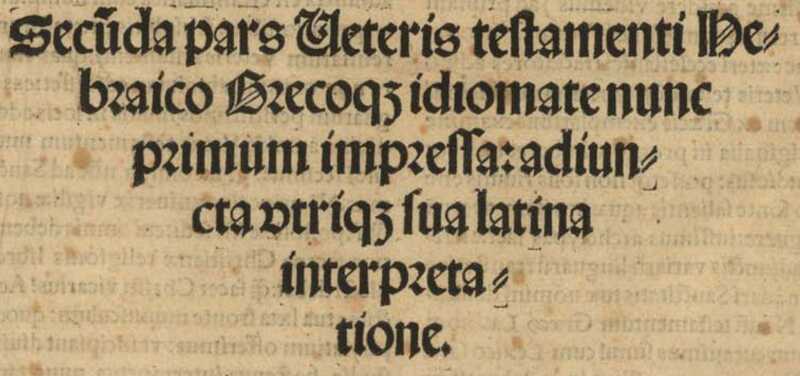 Secūda pars Ueteris teſtamenti He⸗
braico Grecoqꝫ idiomate nunc
primum impreſſa: adiun⸗
cta vtriqꝫ ſua latina
interpreta⸗
tione.